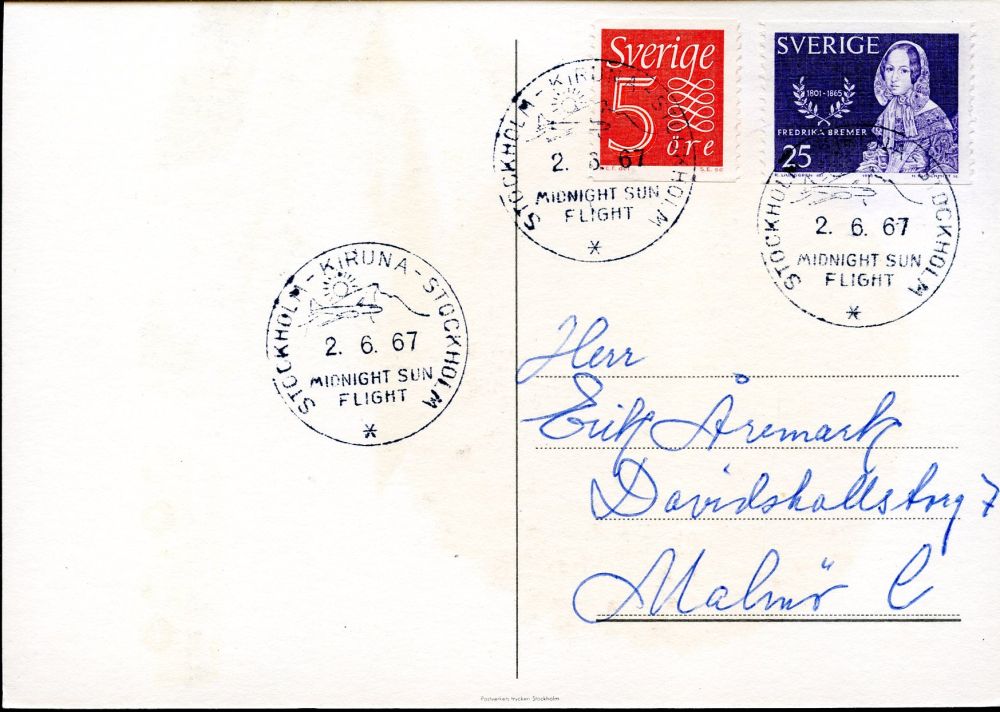 Sverige
5
öre
SVERIGE
1801-1865
FREDRIKA BREMER
25
STOCKHOLM - KIRUNA - STOCKHOLM
2. 6. 67
MIDNIGHT SUN
FLIGHT
STOCKHOLM - KIRUNA - STOCKHOLM
2. 6. 67
MIDNIGHT SUN
FLIGHT
STOCKHOLM - KIRUNA - STOCKHOLM
2. 6. 67
MIDNIGHT SUN
FLIGHT
Herr
Erik Åremark
Davidshallstorg 7
Malmö C
Postverkets tryckeri Stockholm